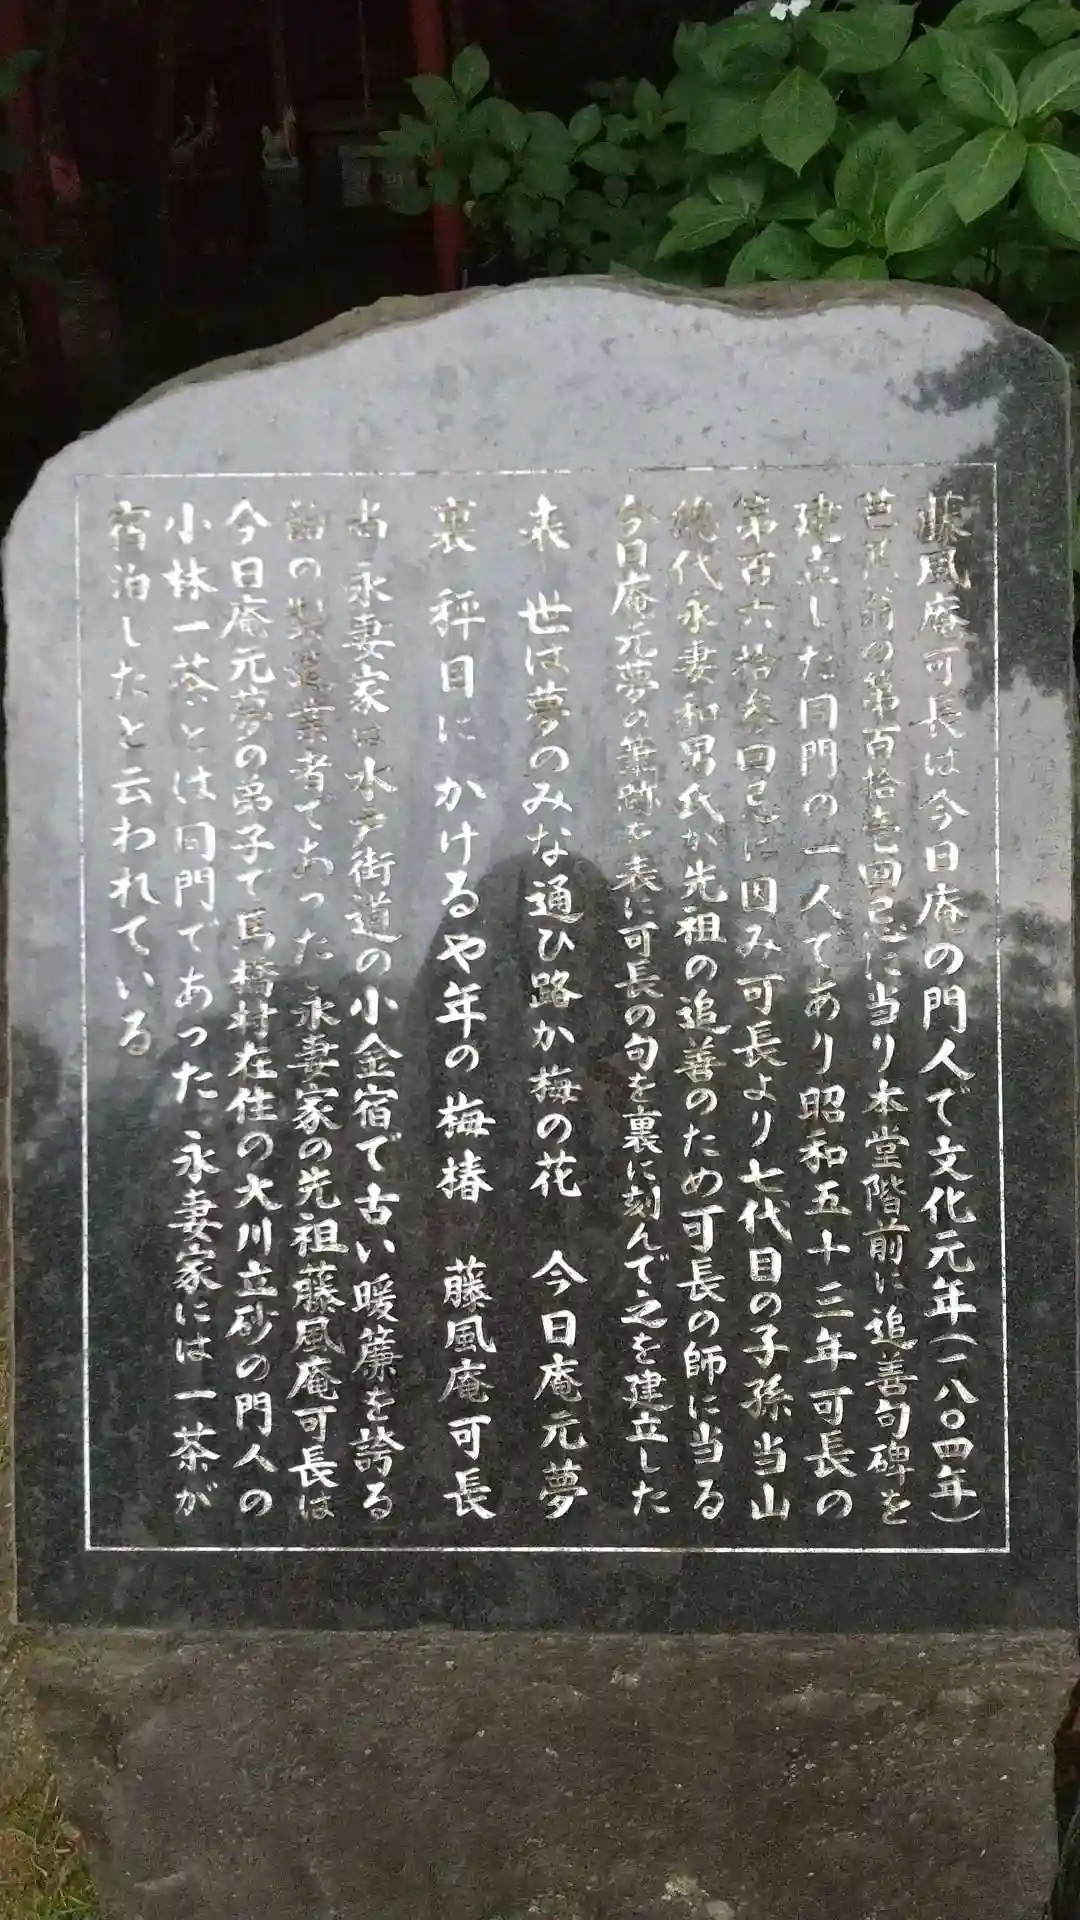 藤風庵可長は今日庵の門人で文化元年(一八〇四年)
芭蕉翁の第百拾壱回忌に当り本堂階前に追善句碑を
建立した同門の一人てあり昭和五十三年可長の
第百六拾参回忌に因み可長より七代目の子孫当山
総代永妻和男氏か先祖の追善のため可長の師に当る
今日庵元夢の筆跡を表に可長の句を裏に刻んで之を建立した
表 世は夢のみな通ひ路か梅の花 今日庵元夢
裏 秤目にかけるや年の梅椿 藤風庵可長
尚永妻家は水戸街道の小金宿で古い暖簾を誇る
の製造業者であった永妻家の先祖藤風庵可長は
今日庵元夢の弟子で馬橋村在住の大川立砂の門人の
小林一茶とは同門であった永妻家には一茶が
宿泊したと云われている